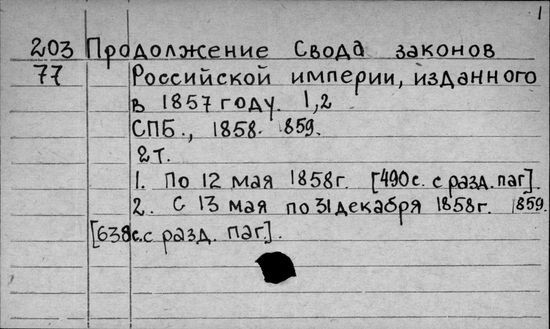 1
203 Продолжение Свода законов
77 Российской империи, изданного
в 1857 году. 1,2
СПБ., 1858. 859.
2т.
1. По 12 мая 1858г. [490с. с разд. паг].
2. С 13 мая по 31 декабря 1858г. 859.
[638с.с разд. паг].